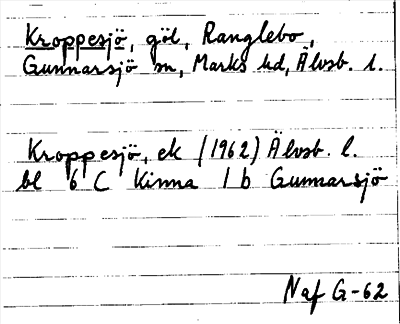 Kroppesjö, göl, Ranglebo,
Gunnarsjö sn, Marks hd, Älvsb. l.
Kroppesjö, ek (1962) Älvsb. l.
bl 6 C Kinna 1 b Gunnarsjö
Naf G-62